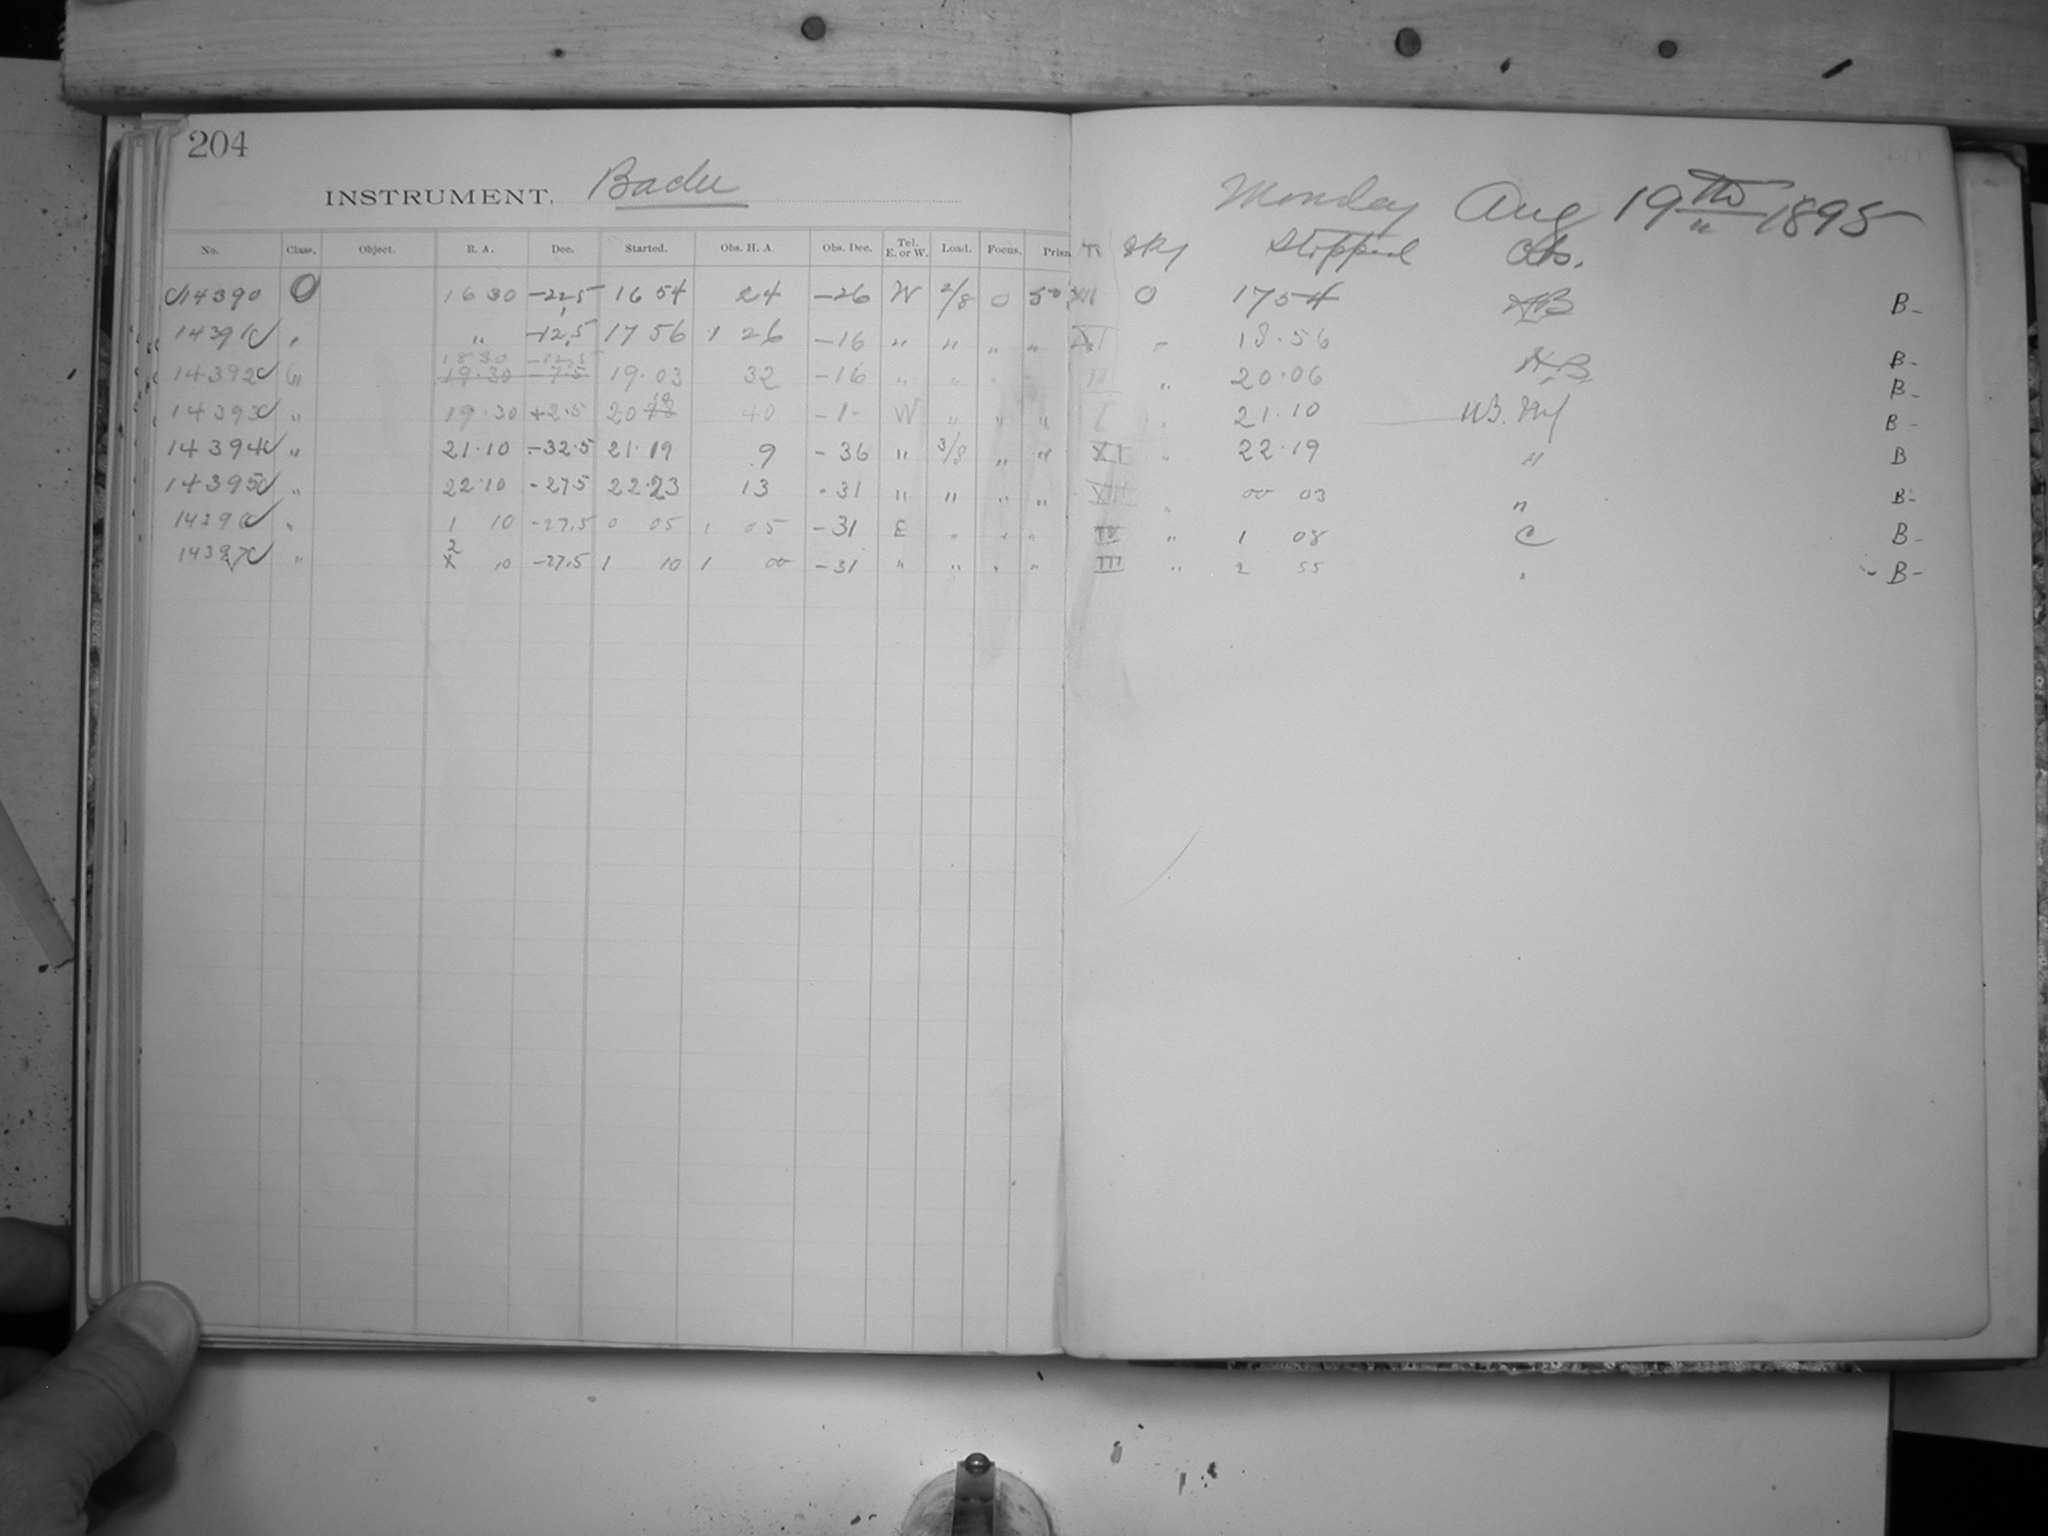 204
INSTRUMENT. Bache
Monday Aug 19th 1895
No. Class. Object. R. A. Dec. Started. Obs. H. A. Obs. Dec. Tel. E. or W. Load. Focus. Sky Stopped Obs.
14390 O 16 30 -22,5 16 54 24 -26 W 2/8 O O 17 54 AB B-
14391 " " -12,5 17 56 1 26 -16 " " " " XI " 18.56 B-
18 30 -12,5
14392 " 19.30 -7.5 19.03 32 -16 " " " " 20.06 A.B. B-
14393 " 19.30 +2.5 20 10 40 -1 W " " " " 21.10 B-
14394 " 21.10 -32.5 21.19 9 -36 " 3/8 " " XI " 22.19 " B
14395 " 22.10 -27.5 22.23 13 -31 " " " " XIII " 00 03 " B-
14396 " 1 10 -27.5 0 05 1 05 -31 E " " " IV " 1 08 C B-
14397 " 2 10 -27.5 1 10 1 00 -31 " " " " III " 2 55 " B-